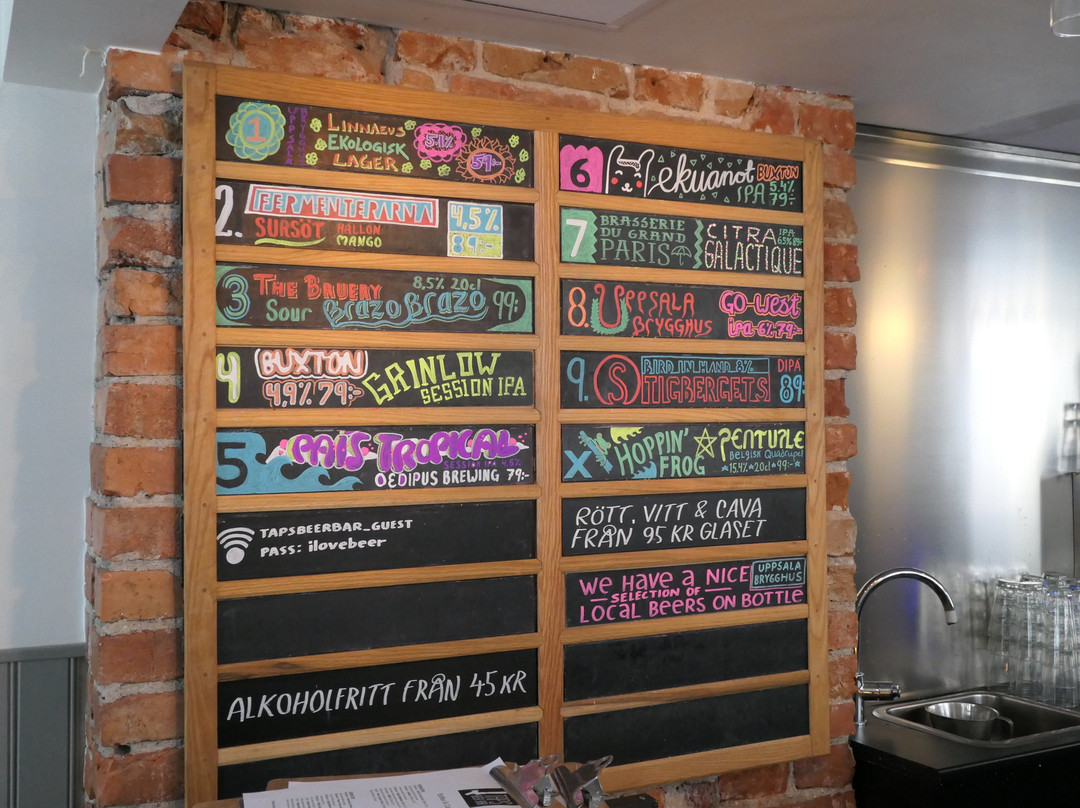 1 UPPSALA BRYGGHUS LINNAEUS
EKOLOGISK
LAGER 5.1% 59:-
2. FERMENTERARNA 4,5%
SURSÖT HALLON
MANGO 89:-
3 THE BRUERY 8,5% 20cl
Sour BRAZO BRAZO 99:-
4 BUXTON GRINLOW
4,9% 79:- SESSION IPA
5 PAIS TROPICAL
SESSION IPA 4.5%
OEDIPUS BREWING 79:-
TAPSBEERBAR_GUEST
PASS: ilovebeer
ALKOHOLFRITT FRÅN 45 KR
6 ekuanot BUXTON
IPA 5.4%
79:-
7 BRASSERIE
DU GRAND
PARIS CITRA IPA
GALACTIQUE 6.5% 89:-
8. UPPSALA
BRYGGHUS GO-WEST
IPA-6% 79:-
9. BIRD IN HAND 8% DIPA
STIGBERGETS 89:-
X HOPPIN'
FROG PENTUPLE
BELGISK Quadrupel
15.4% 20cl 99:-
RÖTT, VITT & CAVA
FRÅN 95 KR GLASET
WE HAVE a NICE UPPSALA
BRYGGHUS
SELECTION OF
LOCAL BEERS ON BOTTLE